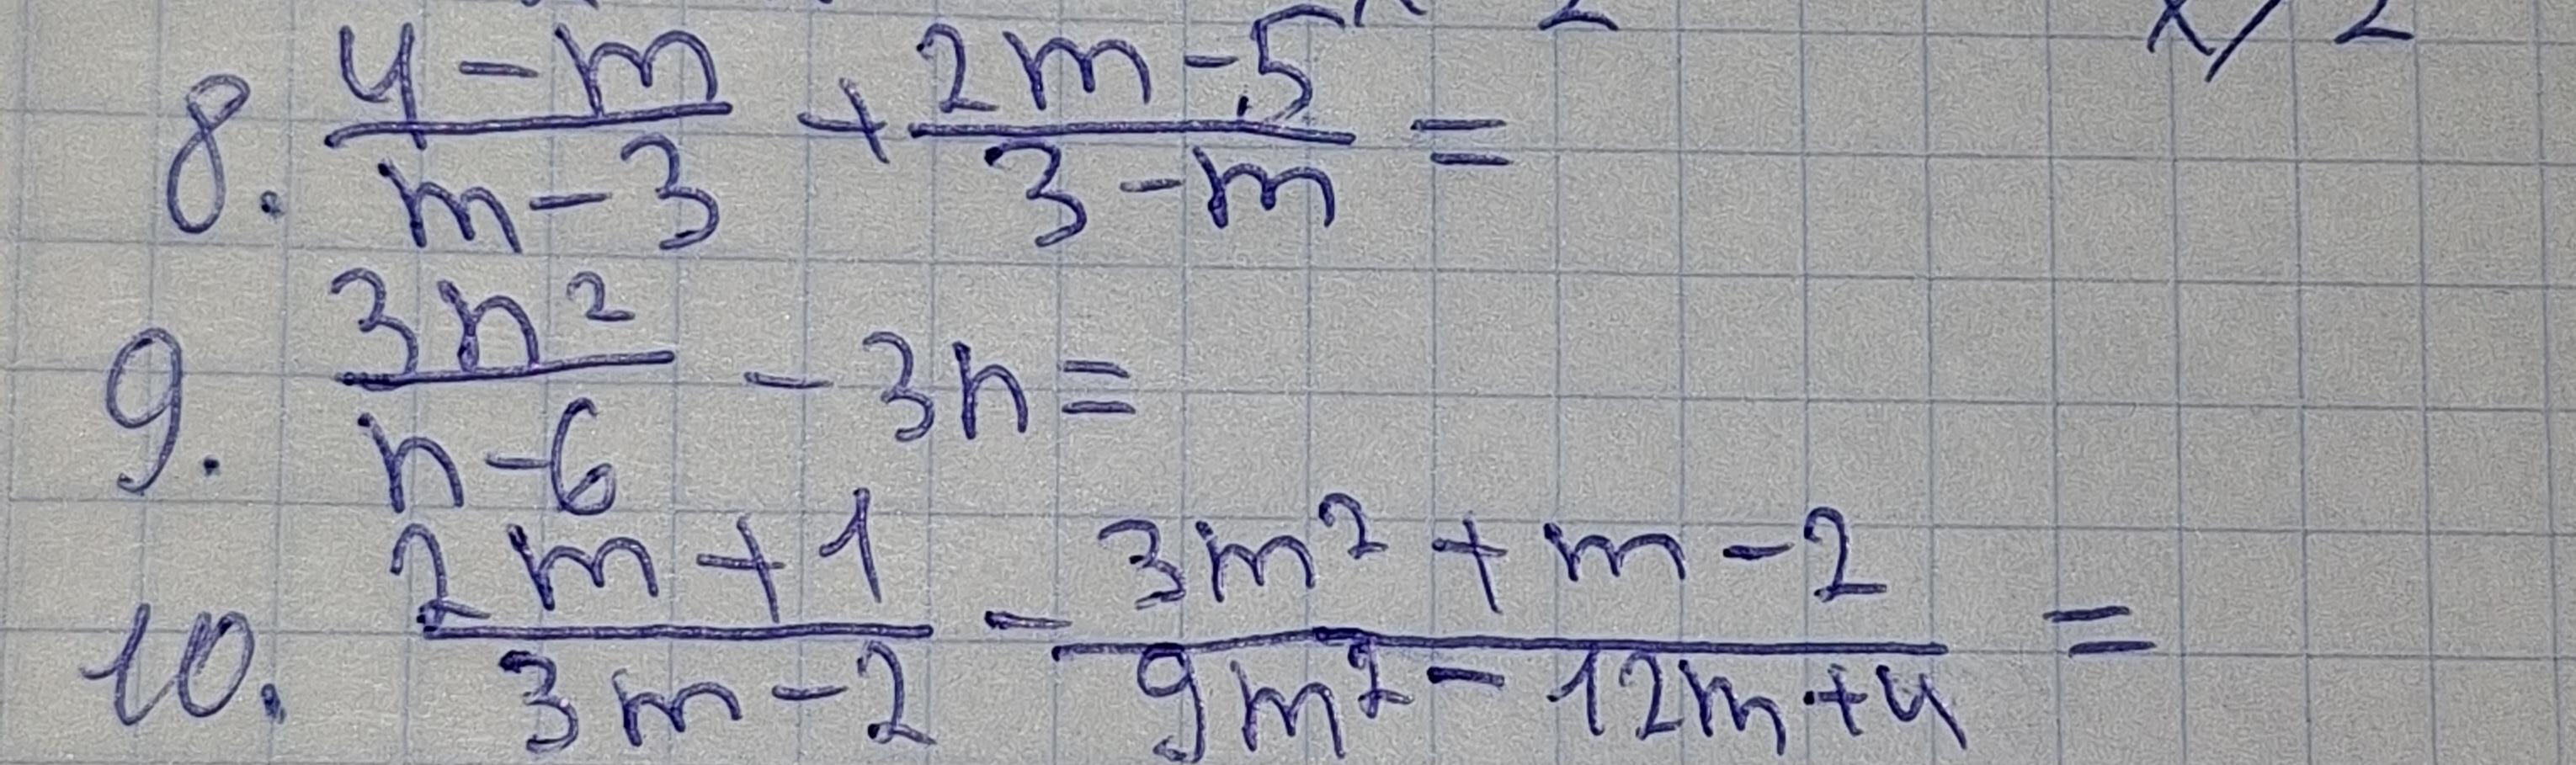 8. \frac{4-m}{m-3} + \frac{2m-5}{3-m} =
9. \frac{3n^2}{n-6} - 3n =
10. \frac{2m+1}{3m-2} - \frac{3m^2+m-2}{9m^2-12m+4} =